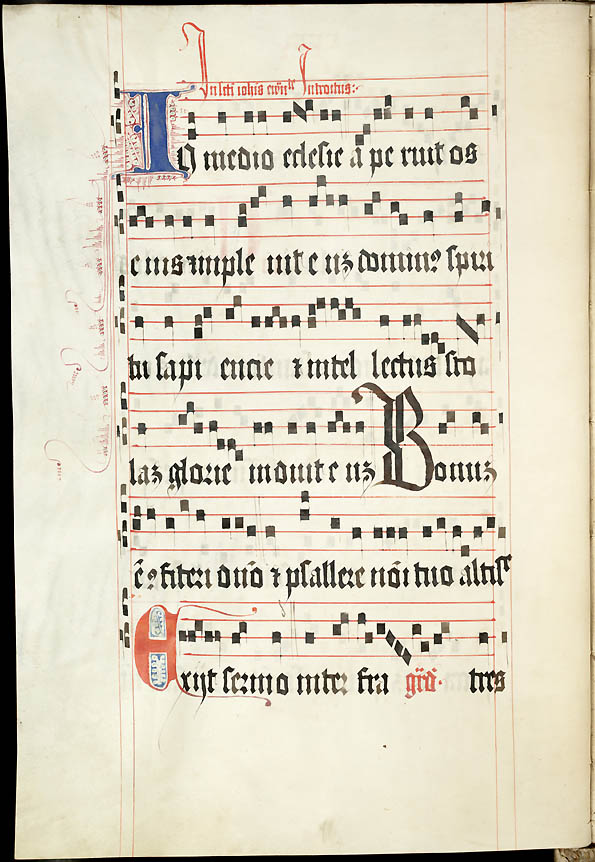 In scti iohis ewñ Introitus:
In medio eclesie a pe ruit os
e ius ⁊ imple uit e uʒ dominꝰ spiri
tu sapi encie ⁊ intel lectus sto
laʒ glorie induit e uʒ Bonuʒ
ē ꝯfiteri dn̄o ⁊ psallere nōi tuo altiss
Exijt sermo inter fra gr̄d. tres